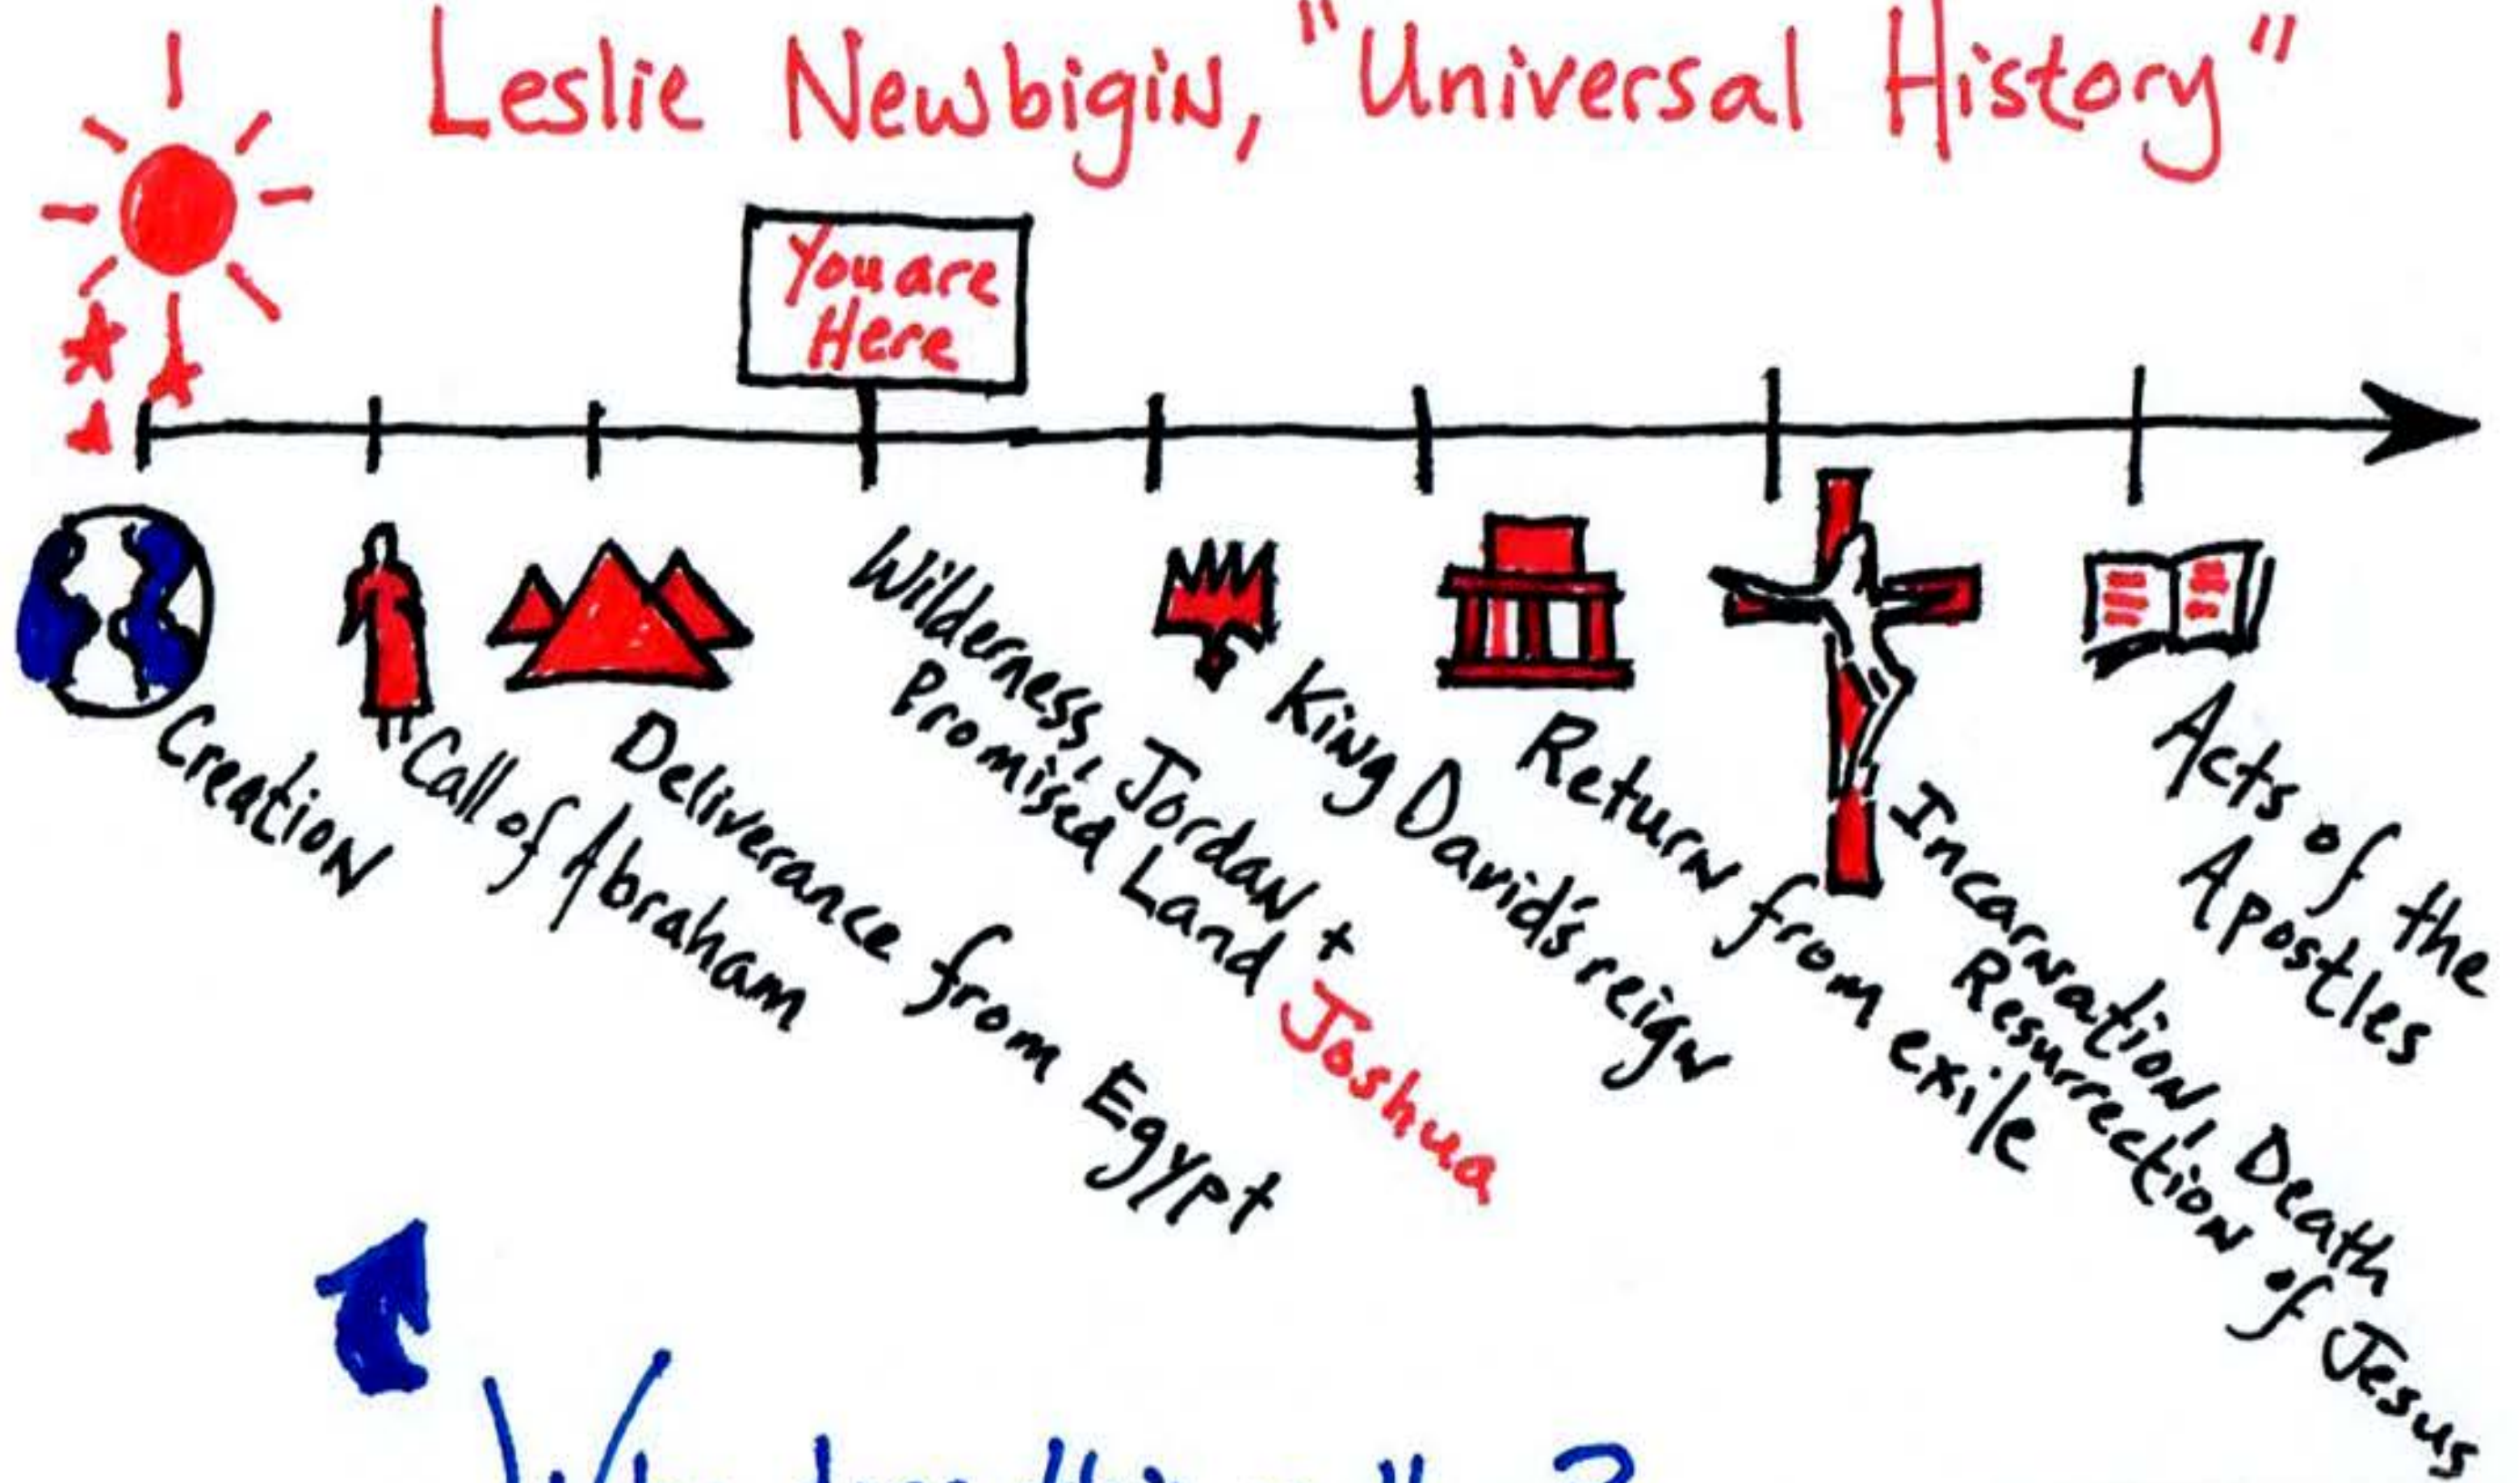 Leslie Newbigin, "Universal History"
You are
Here
Creation
Call of Abraham
Deliverance from Egypt
Wilderness, Jordan +
Promised Land Joshua
King David's reign
Return from exile
Incarnation, Death
Resurrection of Jesus
Acts of the
Apostles